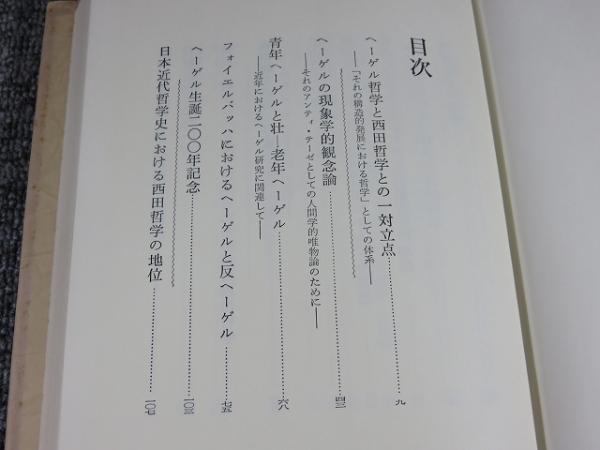 目次
ヘーゲル哲学と西田哲学との一対立点……九
――「それの構造的発展における哲学」としての体系――
ヘーゲルの現象学的観念論……四三
――それのアンティ・テーゼとしての人間学的唯物論のために――
青年ヘーゲルと壮―老年ヘーゲル……六八
――近年におけるヘーゲル研究に関連して――
フォイエルバッハにおけるヘーゲルと反ヘーゲル……七五
ヘーゲル生誕二〇〇年記念……一〇三
日本近代哲学史における西田哲学の地位……一〇七